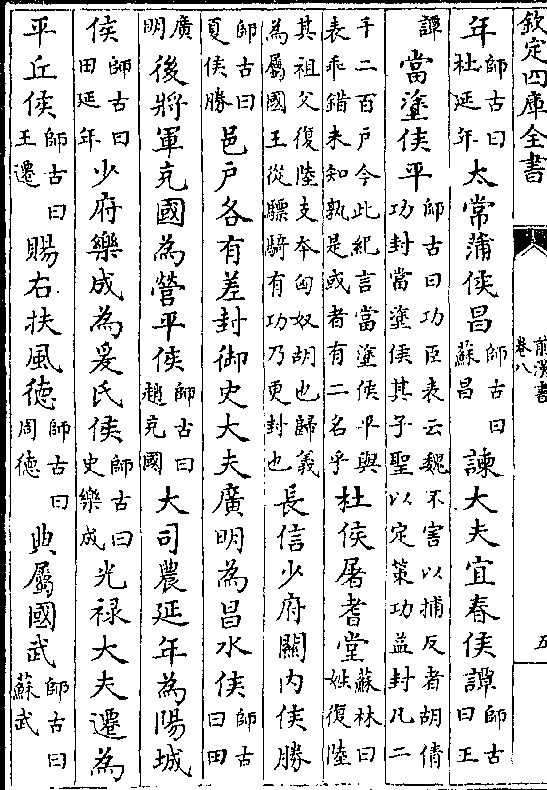 欽定四庫全書
前漢書
卷八
五
年師古曰杜延年太常蒲侯昌師古曰蘇昌諫大夫宜春侯譚師古曰王
譚當塗侯平師古曰功臣表云魏不害以捕反者胡倩功封當塗侯其子聖以定策功益封凡二
千二百戶今此紀言當塗侯平與表乖錯未知孰是或者有二名乎杜侯屠耆堂蘇林曰姓復陸
其祖父復陸支本匈奴胡也歸義為屬國王從驃騎有功乃更封也長信少府關內侯勝
師古曰夏侯勝邑戶各有差封御史大夫廣明為昌水侯師古曰田
廣明後將軍充國為營平侯師古曰趙充國大司農延年為陽城
侯師古曰田延年少府樂成為爰氏侯師古曰史樂成光祿大夫遷為
平丘侯師古曰王遷賜右扶風德師古曰周德典屬國武師古曰蘇武